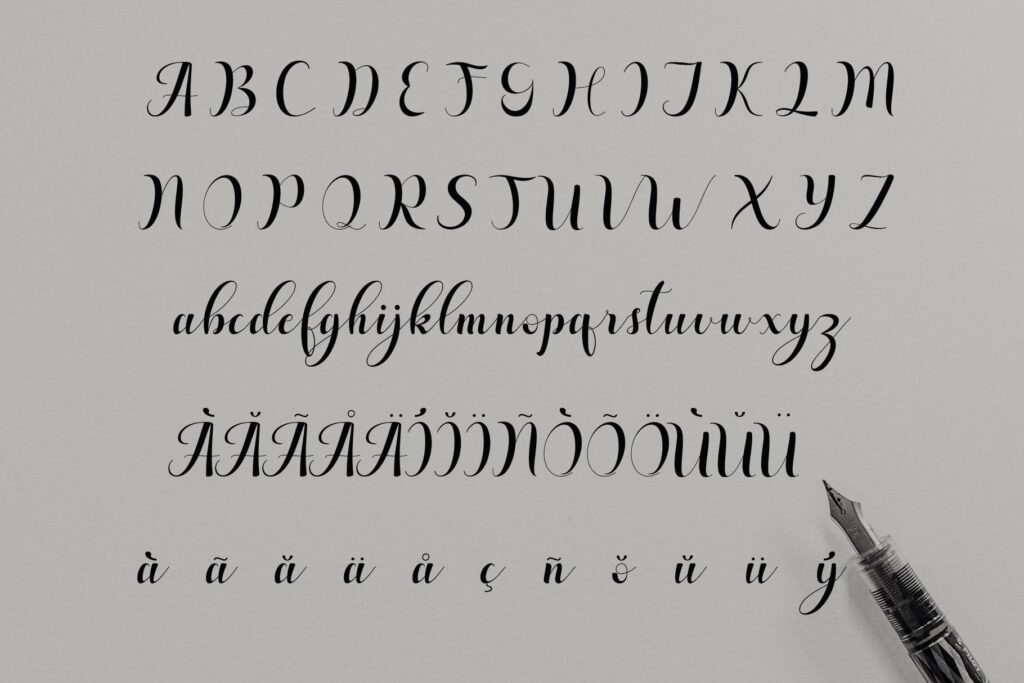 A B C D E F G H I J K L M
N O P Q R S T U V W X Y Z
abcdefghijklmnopqrstuvwxyz
ÀĂÃÅÄÍĬÏÑÒÕÖÙŬÜ
à ã ă ä å ç ñ ŏ ŭ ü ý